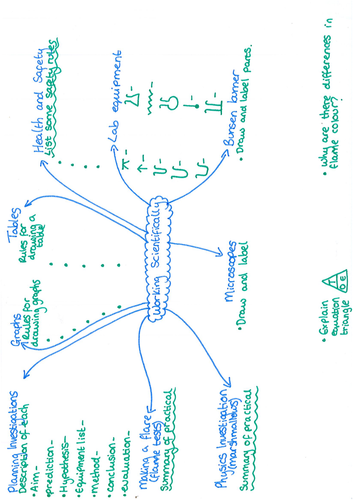 Working Scientifically
Planning Investigations
Description of each
• Aim-
• prediction-
• Hypothesis-
• Equipment list-
• method-
• conclusion-
• evaluation-
Graphs
Rules for
drawing graphs
Tables
Rules for
drawing a
table
Health and Safety
List some safety rules
Lab equipment
Bunsen burner
• Draw and label parts.
• Why are there differences in
flame colour?
Microscopes
• Draw and label
• Explain
equation
triangle
Physics investigation
(marshmallows)
Summary of practical
making a flare
(flame tests)
Summary of practical